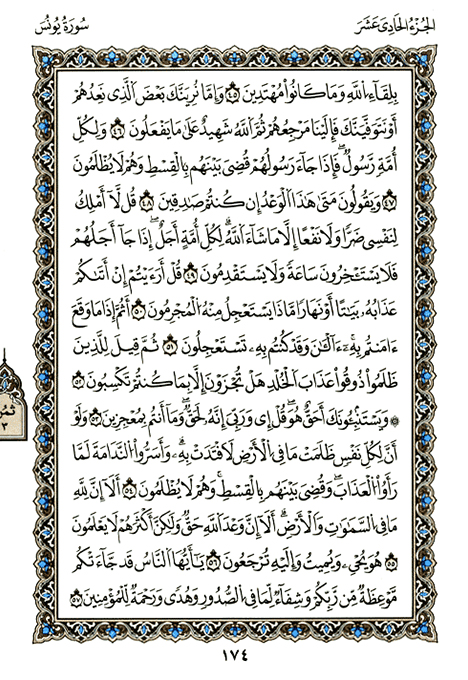 الجُزْءُ الحَادِى عَشَرَ
سُورَةُ يُونُسَ
بِلِقَآءِ ٱللَّهِ وَمَا كَانُوا۟ مُهْتَدِينَ ٤٥ وَإِمَّا نُرِيَنَّكَ بَعْضَ ٱلَّذِى نَعِدُهُمْ
أَوْ نَتَوَفَّيَنَّكَ فَإِلَيْنَا مَرْجِعُهُمْ ثُمَّ ٱللَّهُ شَهِيدٌ عَلَىٰ مَا يَفْعَلُونَ ٤٦ وَلِكُلِّ
أُمَّةٍ رَّسُولٌ ۖ فَإِذَا جَآءَ رَسُولُهُمْ قُضِىَ بَيْنَهُم بِٱلْقِسْطِ وَهُمْ لَا يُظْلَمُونَ
٤٧ وَيَقُولُونَ مَتَىٰ هَٰذَا ٱلْوَعْدُ إِن كُنتُمْ صَٰدِقِينَ ٤٨ قُل لَّآ أَمْلِكُ
لِنَفْسِى ضَرًّا وَلَا نَفْعًا إِلَّا مَا شَآءَ ٱللَّهُ ۗ لِكُلِّ أُمَّةٍ أَجَلٌ ۚ إِذَا جَآءَ أَجَلُهُمْ
فَلَا يَسْتَـْٔخِرُونَ سَاعَةً وَلَا يَسْتَقْدِمُونَ ٤٩ قُلْ أَرَءَيْتُمْ إِنْ أَتَىٰكُمْ
عَذَابُهُۥ بَيَٰتًا أَوْ نَهَارًا مَّاذَا يَسْتَعْجِلُ مِنْهُ ٱلْمُجْرِمُونَ ٥٠ أَثُمَّ إِذَا مَا وَقَعَ
ءَامَنتُم بِهِۦٓ ۚ ءَآلْـَٰٔنَ وَقَدْ كُنتُم بِهِۦ تَسْتَعْجِلُونَ ٥١ ثُمَّ قِيلَ لِلَّذِينَ
ظَلَمُوا۟ ذُوقُوا۟ عَذَابَ ٱلْخُلْدِ هَلْ تُجْزَوْنَ إِلَّا بِمَا كُنتُمْ تَكْسِبُونَ ٥٢
۞ وَيَسْتَنۢبِـُٔونَكَ أَحَقٌّ هُوَ ۖ قُلْ إِى وَرَبِّىٓ إِنَّهُۥ لَحَقٌّ ۖ وَمَآ أَنتُم بِمُعْجِزِينَ ٥٣ وَلَوْ
أَنَّ لِكُلِّ نَفْسٍ ظَلَمَتْ مَا فِى ٱلْأَرْضِ لَٱفْتَدَتْ بِهِۦ ۗ وَأَسَرُّوا۟ ٱلنَّدَامَةَ لَمَّا
رَأَوُا۟ ٱلْعَذَابَ ۖ وَقُضِىَ بَيْنَهُم بِٱلْقِسْطِ ۚ وَهُمْ لَا يُظْلَمُونَ ٥٤ أَلَآ إِنَّ لِلَّهِ
مَا فِى ٱلسَّمَٰوَٰتِ وَٱلْأَرْضِ ۗ أَلَآ إِنَّ وَعْدَ ٱللَّهِ حَقٌّ وَلَٰكِنَّ أَكْثَرَهُمْ لَا يَعْلَمُونَ
٥٥ هُوَ يُحْىِۦ وَيُمِيتُ وَإِلَيْهِ تُرْجَعُونَ ٥٦ يَٰٓأَيُّهَا ٱلنَّاسُ قَدْ جَآءَتْكُم
مَّوْعِظَةٌ مِّن رَّبِّكُمْ وَشِفَآءٌ لِّمَا فِى ٱلصُّدُورِ وَهُدًى وَرَحْمَةٌ لِّلْمُؤْمِنِينَ ٥٧
١٧٤